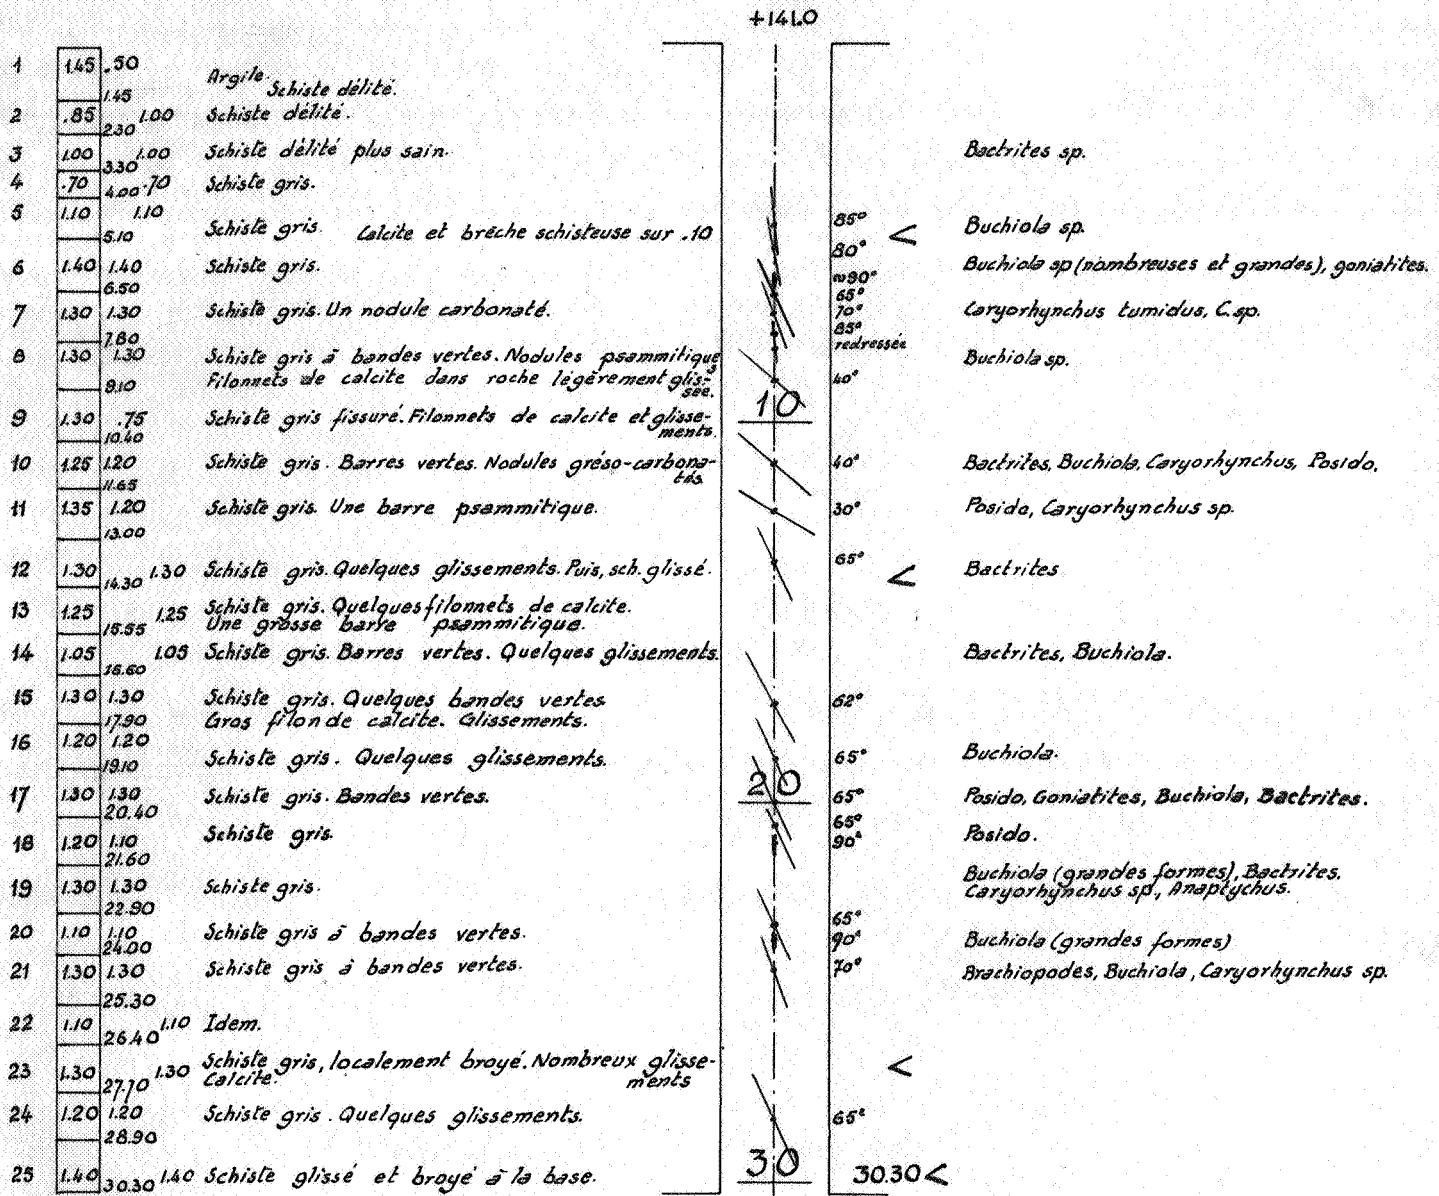 +141.0
1 1.45 .50 Argile. Schiste délité.
1.45
2 .85 1.00 Schiste délité.
2.30
3 1.00 1.00 Schiste délité plus sain. Bactrites sp.
3.30
4 .70 .70 Schiste gris.
4.00
5 1.10 1.10 Schiste gris. Calcite et brèche schisteuse sur .10 85° < Buchiola sp.
5.10
80°
6 1.40 1.40 Schiste gris. Buchiola sp (nombreuses et grandes), goniatites.
6.50
∾90°
65°
7 1.30 1.30 Schiste gris. Un nodule carbonaté. 70° Caryorhynchus tumidus, C. sp.
7.80
85°
redressée
8 1.30 1.30 Schiste gris à bandes vertes. Nodules psammitiques Buchiola sp.
9.10 Filonnets de calcite dans roche légèrement glis- 40°
sée.
10
9 1.30 .75 Schiste gris fissuré. Filonnets de calcite et glisse-
10.40 ments.
10 1.25 1.20 Schiste gris. Barres vertes. Nodules gréso-carbona- 40° Bactrites, Buchiola, Caryorhynchus, Posido.
11.65 tés.
11 1.35 1.20 Schiste gris. Une barre psammitique. 30° Posido, Caryorhynchus sp.
13.00
12 1.30 1.30 Schiste gris. Quelques glissements. Puis, sch. glissé. 65° < Bactrites
14.30
13 1.25 1.25 Schiste gris. Quelques filonnets de calcite.
15.55 Une grosse barre psammitique.
14 1.05 1.05 Schiste gris. Barres vertes. Quelques glissements. Bactrites, Buchiola.
16.60
15 1.30 1.30 Schiste gris. Quelques bandes vertes 62°
17.90 Gros filon de calcite. Glissements.
16 1.20 1.20 Schiste gris. Quelques glissements. 65° Buchiola.
19.10
20
17 1.30 1.30 Schiste gris. Bandes vertes. 65° Posido, Goniatites, Buchiola, Bactrites.
20.40
65°
18 1.20 1.10 Schiste gris. 90° Posido.
21.60
19 1.30 1.30 Schiste gris. Buchiola (grandes formes), Bactrites.
Caryorhynchus sp., Anaptychus.
22.90
65°
20 1.10 1.10 Schiste gris à bandes vertes. 90° Buchiola (grandes formes)
24.00
21 1.30 1.30 Schiste gris à bandes vertes. 70° Brachiopodes, Buchiola, Caryorhynchus sp.
25.30
22 1.10 1.10 Idem.
26.40
23 1.30 1.30 Schiste gris, localement broyé. Nombreux glisse- <
27.70 Calcite. ments
24 1.20 1.20 Schiste gris. Quelques glissements. 65°
28.90
30
25 1.40 1.40 Schiste glissé et broyé à la base. 30.30 <
30.30